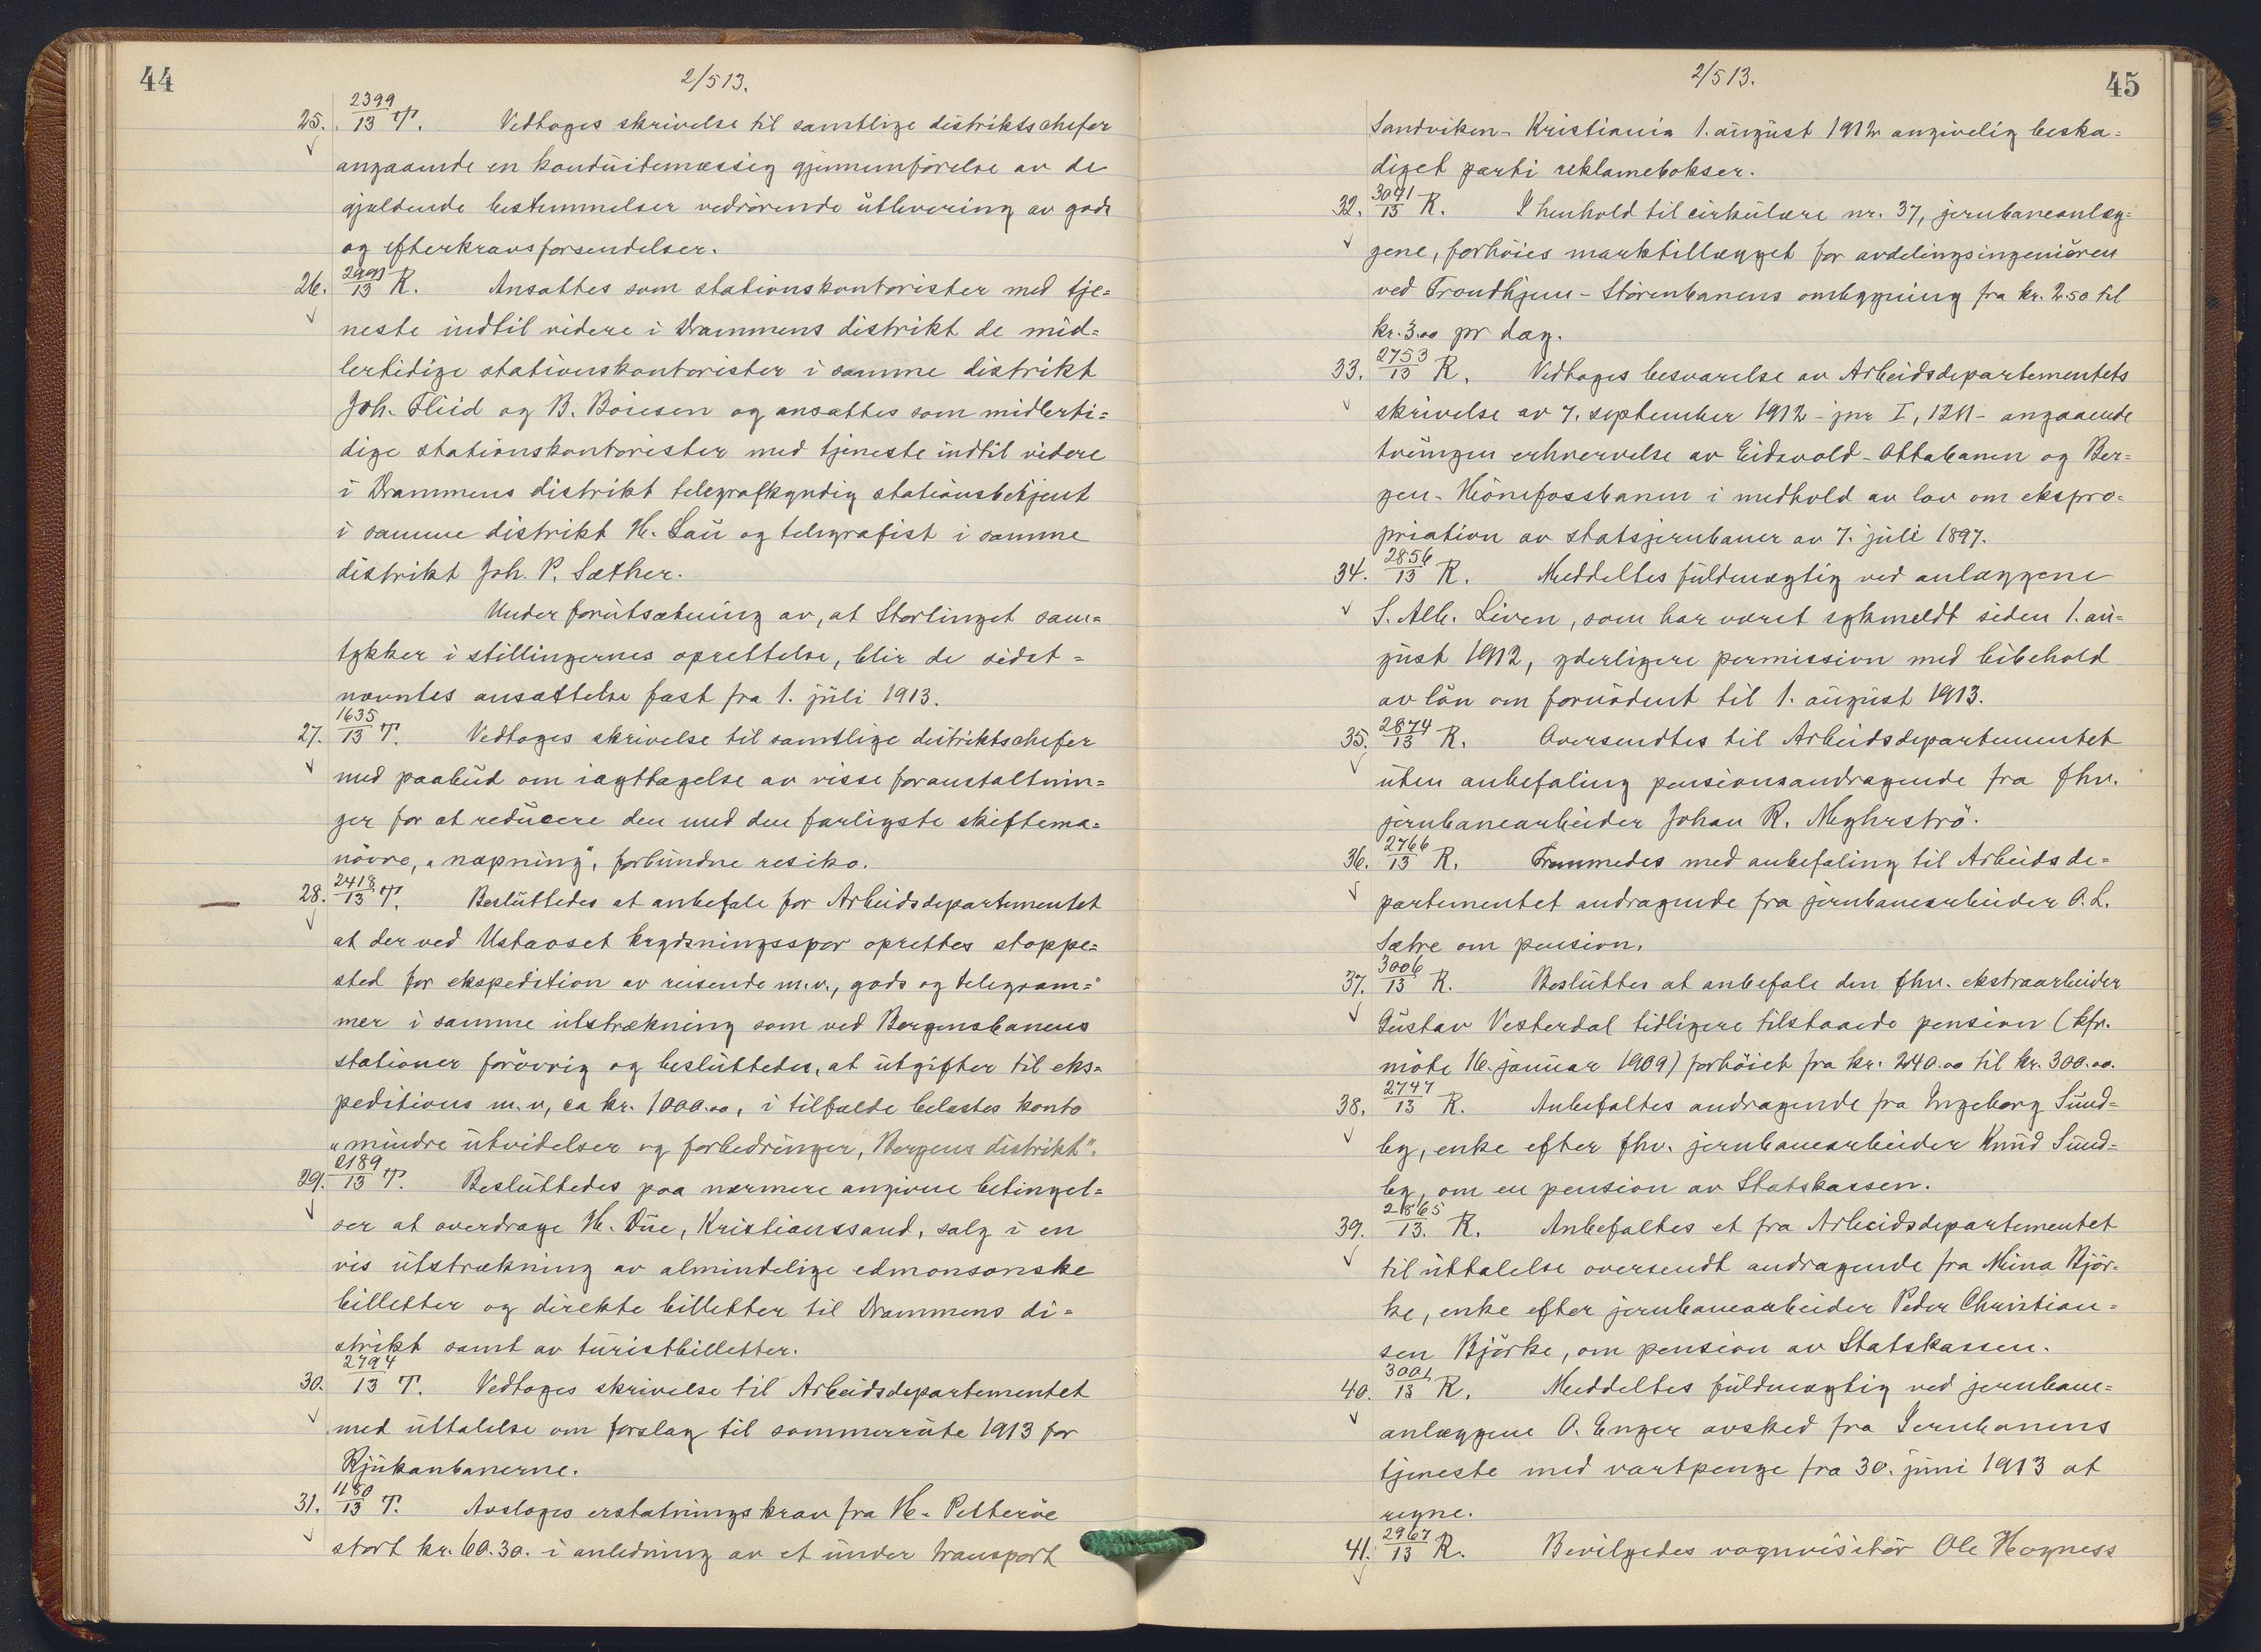 44
2/5 13.
25. 2399/13 T. Vedtoges skrivelse til samtlige distriktschefer
angaaende en konduitemæssig gjennemförelse av de
gjældende bestemmelser vedrörende utlevering av gods
og efterkravsforsendelser.
26. 2991/13 R. Ansattes som stationskontorister med tje=
neste indtil videre i Drammens distrikt de mid=
lertidige stationskontorister i samme distrikt
Joh. Fliid og B. Boiesen og ansattes som midlerti=
dige stationskontorister med tjeneste indtil videre
i Drammens distrikt telegrafkyndig stationsbetjent
i samme distrikt H. Lau og telegrafist i samme
distrikt Joh. P. Sæther.
Under forutsætning av, at Stortinget sam=
tykker i stillingernes oprettelse, blir de sidst=
nævntes ansættelse fast fra 1. juli 1913.
27. 1635/13 T. Vedtoges skrivelse til samtlige distriktschefer
med paabud om iagttagelse av visse foranstaltnin=
ger for at reducere den med den farligste skiftema=
növre, "napning", forbundne resiko.
28. 2418/13 T. Besluttedes at anbefale for Arbeidsdepartementet
at der ved Ustaoset krydsningsspor oprettes stoppe=
sted for ekspedition av reisende m.v., gods og telegram=
mer i samme utstrækning som ved Bergensbanens
stationer forövrig og besluttedes, at utgifter til eks=
peditions m.v, ca kr. 1000.00, i tilfælde belastes konto
"mindre utvidelser og forbedringer, Bergens distrikt".
29. 2189/13 T. Besluttedes paa nærmere angivne betingel=
ser at overdrage H. Due, Kristianssand, salg i en
vis utstrækning av almindelige edmonsonske
billetter og direkte billetter til Drammens di=
strikt samt av turistbilletter.
30. 2794/13 T. Vedtoges skrivelse til Arbeidsdepartementet
med uttalelse om forslag til sommerrute 1913 for
Rjukanbanerne.
31. 1180/13 T. Avsloges erstatningskrav fra H. Petteröe
stort kr. 60.30. i anledning av et under transport
45
2/5 13.
Sandviken- Kristiania 1. august 1912 angivelig beska=
diget parti reklamebokser.
32. 3041/13 R. I henhold til cirkulære nr. 37, jernbaneanlæg=
gene, forhöies marktillægget for avdelingsingeniören
ved Trondhjem - Störenbanens ombygning fra kr. 2.50 til
kr. 3.00 pr dag.
33. 2753/13 R. Vedtoges besvarelse av Arbeidsdepartementets
skrivelse av 7. september 1912 - jnr I, 1211 - angaaende
tvungen erhvervelse av Eidsvold - Ottabanen og Ber=
gen - Hönefossbanen i medhold av lov om ekspro=
priation av statsjernbaner av 7. juli 1897.
34. 2856/13 R. Meddeltes fuldmægtig ved anlæggene
S. Alb. Liven, som har været sykmeldt siden 1. au=
gust 1912, yderligere permission med bibehold
av lön om fornödent til 1. august 1913.
35. 2874/13 R. Oversendtes til Arbeidsdepartementet
uten anbefaling pensionsandragende fra fhv.
jernbanearbeider Johan R. Myhrströ.
36. 2766/13 R. Fremmedes med anbefaling til Arbeidsde=
partementet andragende fra jernbanearbeider O. L.
Sætre om pension.
37. 3006/13 R. Besluttes at anbefale den fhv. ekstraarbeider
Gustav Vesterdal tidligere tilstaaede pension (kfr.
möte 16. januar 1909) forhöiet fra kr. 240.00 til kr. 300.00.
38. 2747/13 R. Anbefaltes andragende fra Ingeborg Sund=
by, enke efter fhv. jernbanearbeider Knud Sund=
by, om en pension av Statskassen.
39. 2865/13. R. Anbefaltes et fra Arbeidsdepartementet
til uttalelse oversendt andragende fra Mina Björ=
ke, enke efter jernbanearbeider Peder Christian=
sen Björke, om pension av Statskassen.
40. 3001/13 R. Meddeltes fuldmægtig ved jernbane=
anlæggene O. Enger avsked fra Jernbanens
tjeneste med vartpenge fra 30. juni 1913 at
regne.
41. 2967/13 R. Bevilgedes vognvisitör Ole Hogness